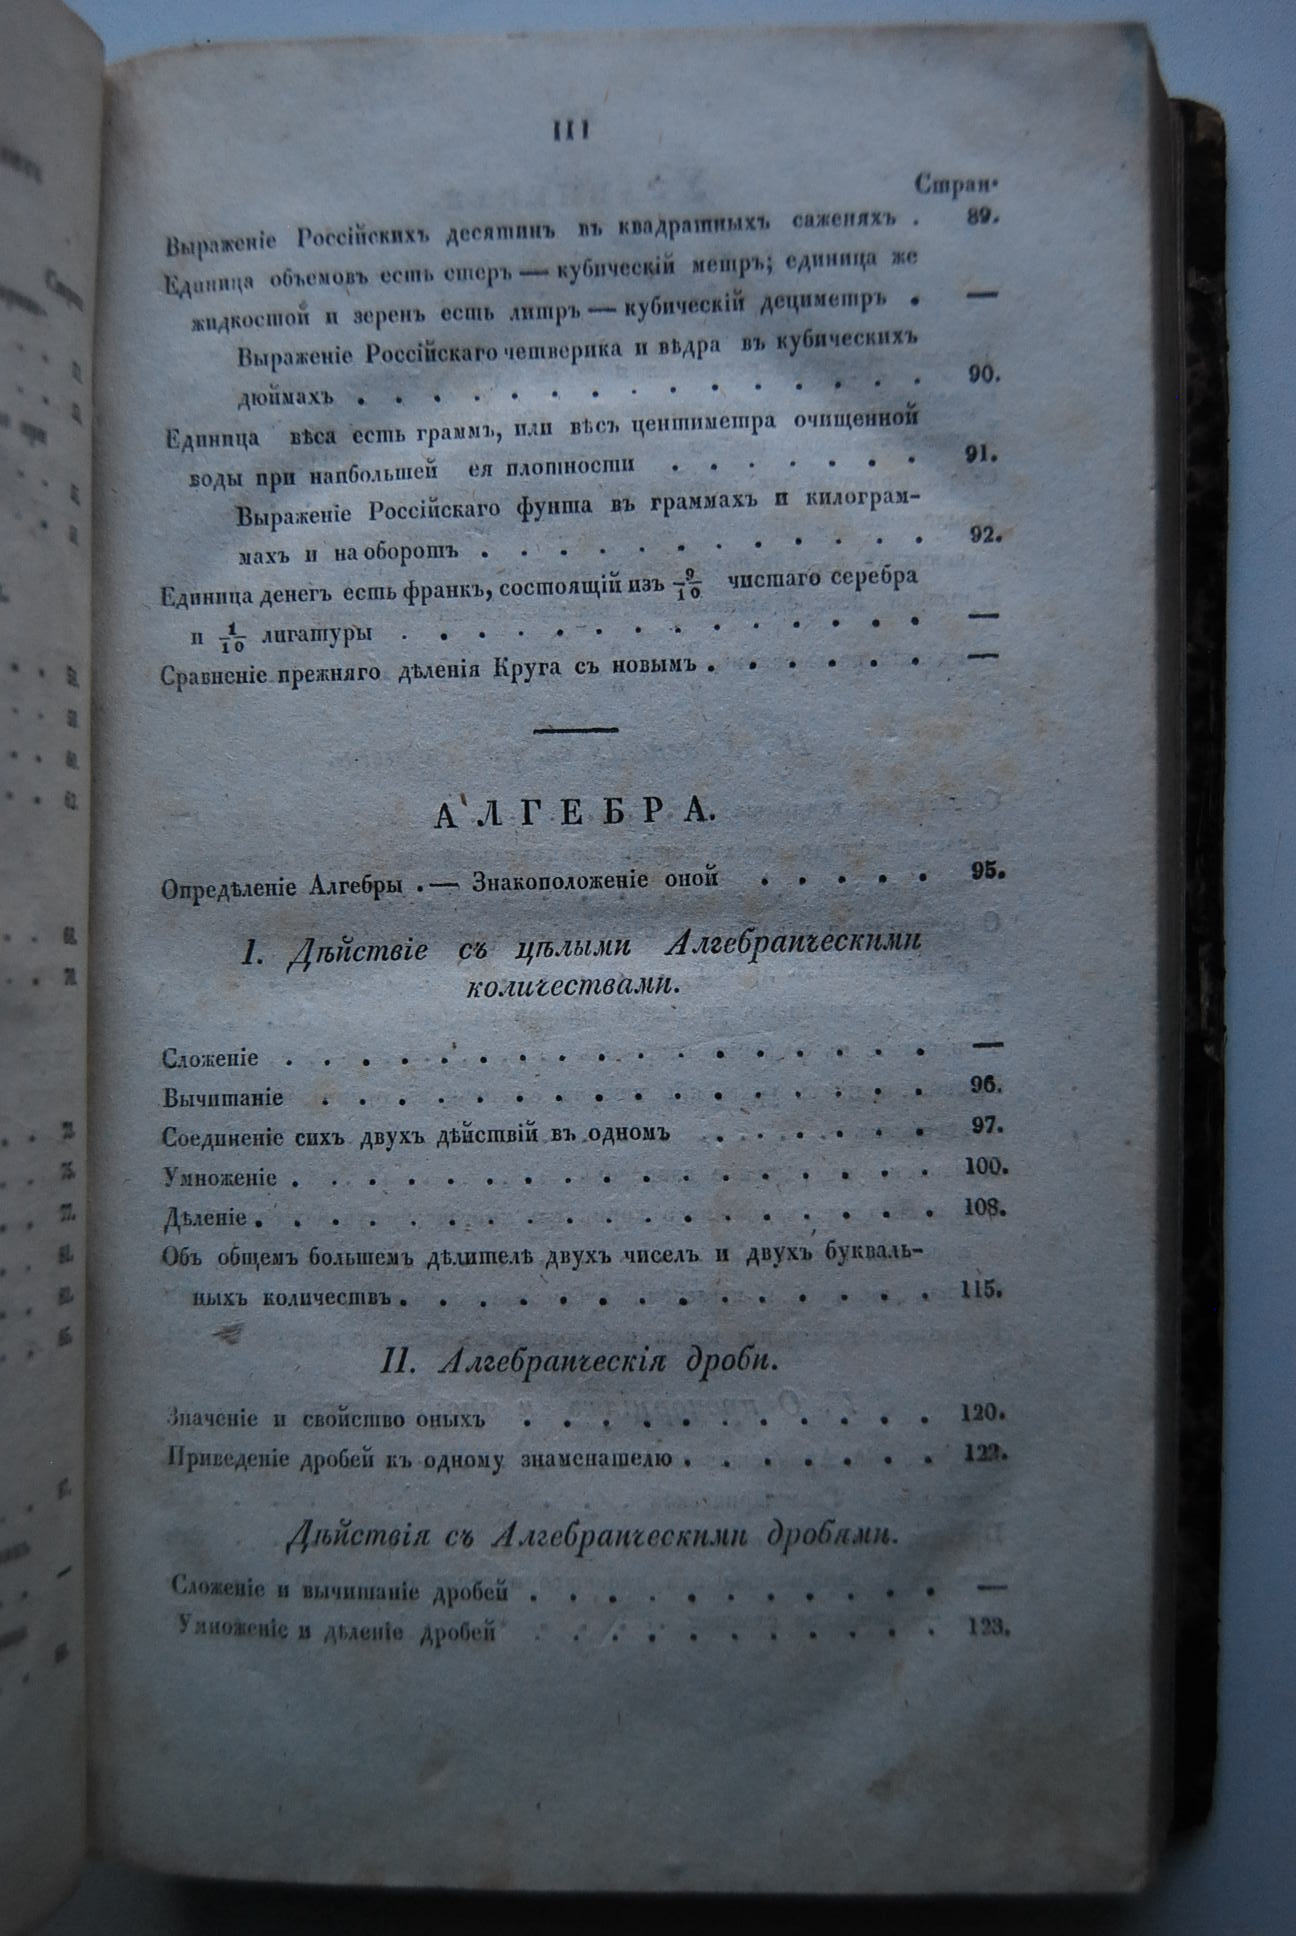 III
Стран.
Выраженіе Россійскихъ десятинъ въ квадратныхъ саженяхъ . 89.
Единица объемовъ есть стеръ — кубическій метръ; единица же
жидкостой и зеренъ есть литръ — кубическій дециметръ . —
Выраженіе Россійскаго четверика и вѣдра въ кубическихъ
дюймахъ . . . . . . . . . . . . . . . 90.
Единица вѣса есть граммъ, или вѣсъ центиметра очищенной
воды при наибольшей ея плотности . . . . . . . 91.
Выраженіе Россійскаго фунта въ граммахъ и килограм-
махъ и на оборотъ . . . . . . . . . . . . 92.
Единица денегъ есть франкъ, состоящій изъ 9/10 чистаго серебра
и 1/10 лигатуры . . . . . . . . . . . . . . —
Сравненіе прежняго дѣленія Круга съ новымъ . . . . . . —
АЛГЕБРА.
Опредѣленіе Алгебры . — Знакоположеніе оной . . . . . 95.
I. Дѣйствіе съ цѣлыми Алгебраическими
количествами.
Сложеніе . . . . . . . . . . . . . . . . . —
Вычитаніе . . . . . . . . . . . . . . . . 96.
Соединеніе сихъ двухъ дѣйствій въ одномъ . . . . . . 97.
Умноженіе . . . . . . . . . . . . . . . . . 100.
Дѣленіе . . . . . . . . . . . . . . . . . . 108.
Объ общемъ большемъ дѣлителѣ двухъ чиселъ и двухъ букваль-
ныхъ количествъ . . . . . . . . . . . . . . 115.
II. Алгебраическія дроби.
Значеніе и свойство оныхъ . . . . . . . . . . . 120.
Приведеніе дробей къ одному знаменателю . . . . . . . 122.
Дѣйствія съ Алгебраическими дробями.
Сложеніе и вычитаніе дробей . . . . . . . . . . . —
Умноженіе и дѣленіе дробей . . . . . . . . . . . 123.